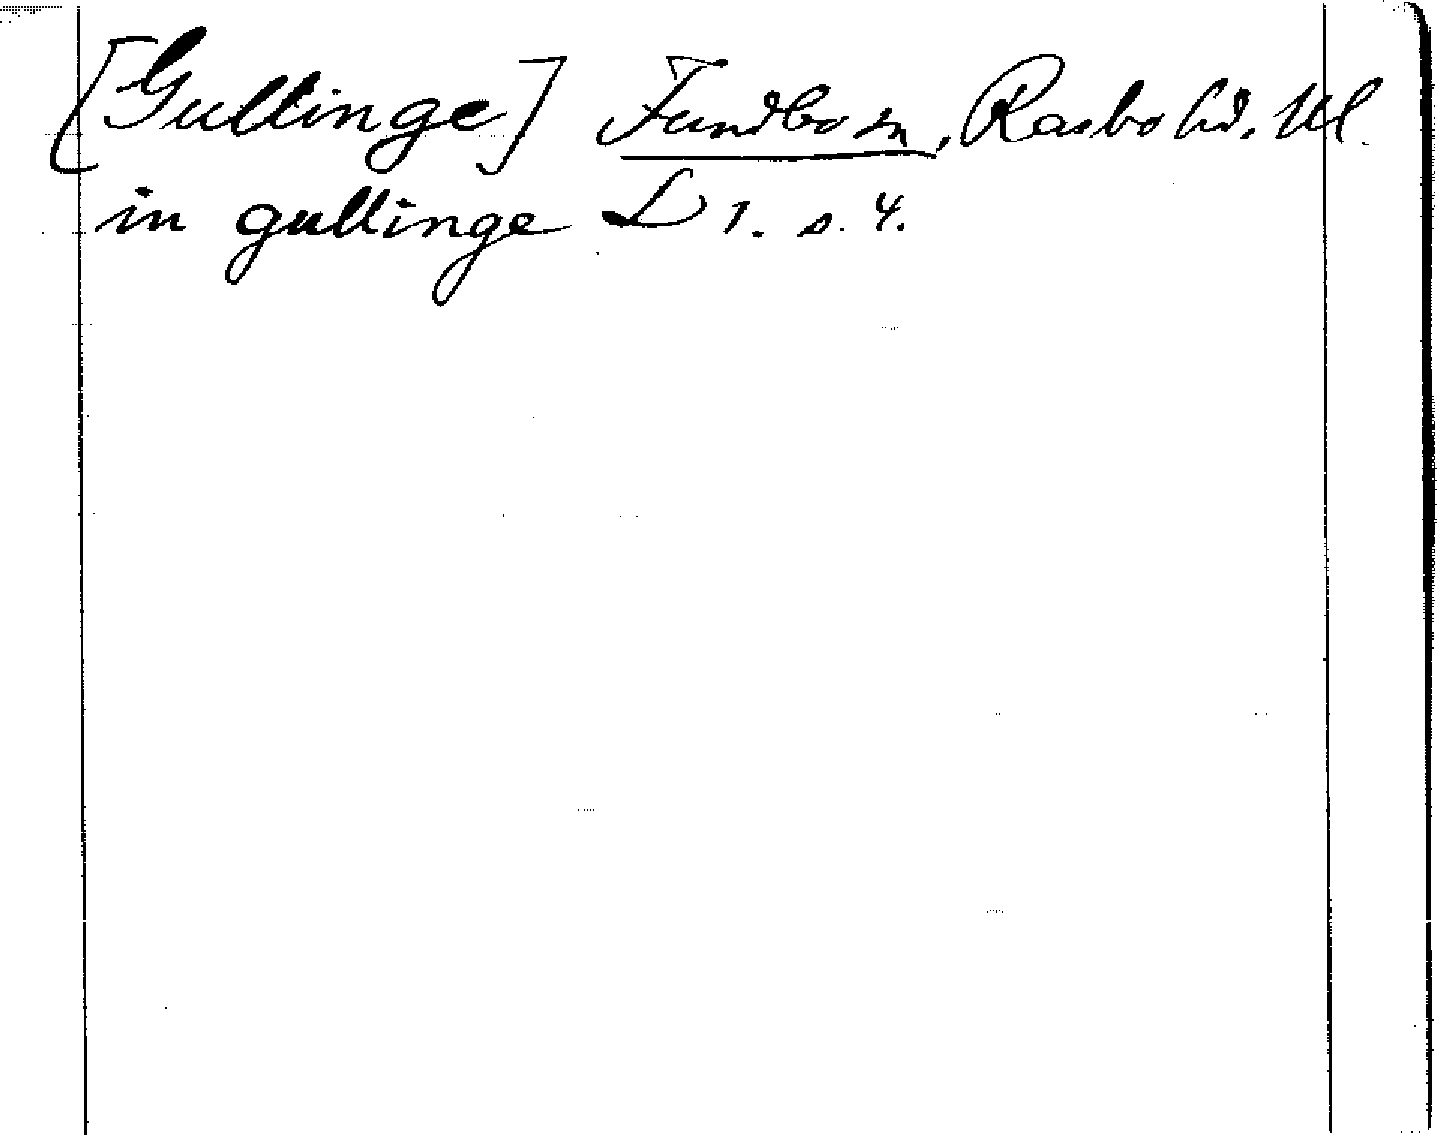 [Gullinge] Funbo sn, Rasbo hd. Ul.
in gullinge L 1. s. 4.